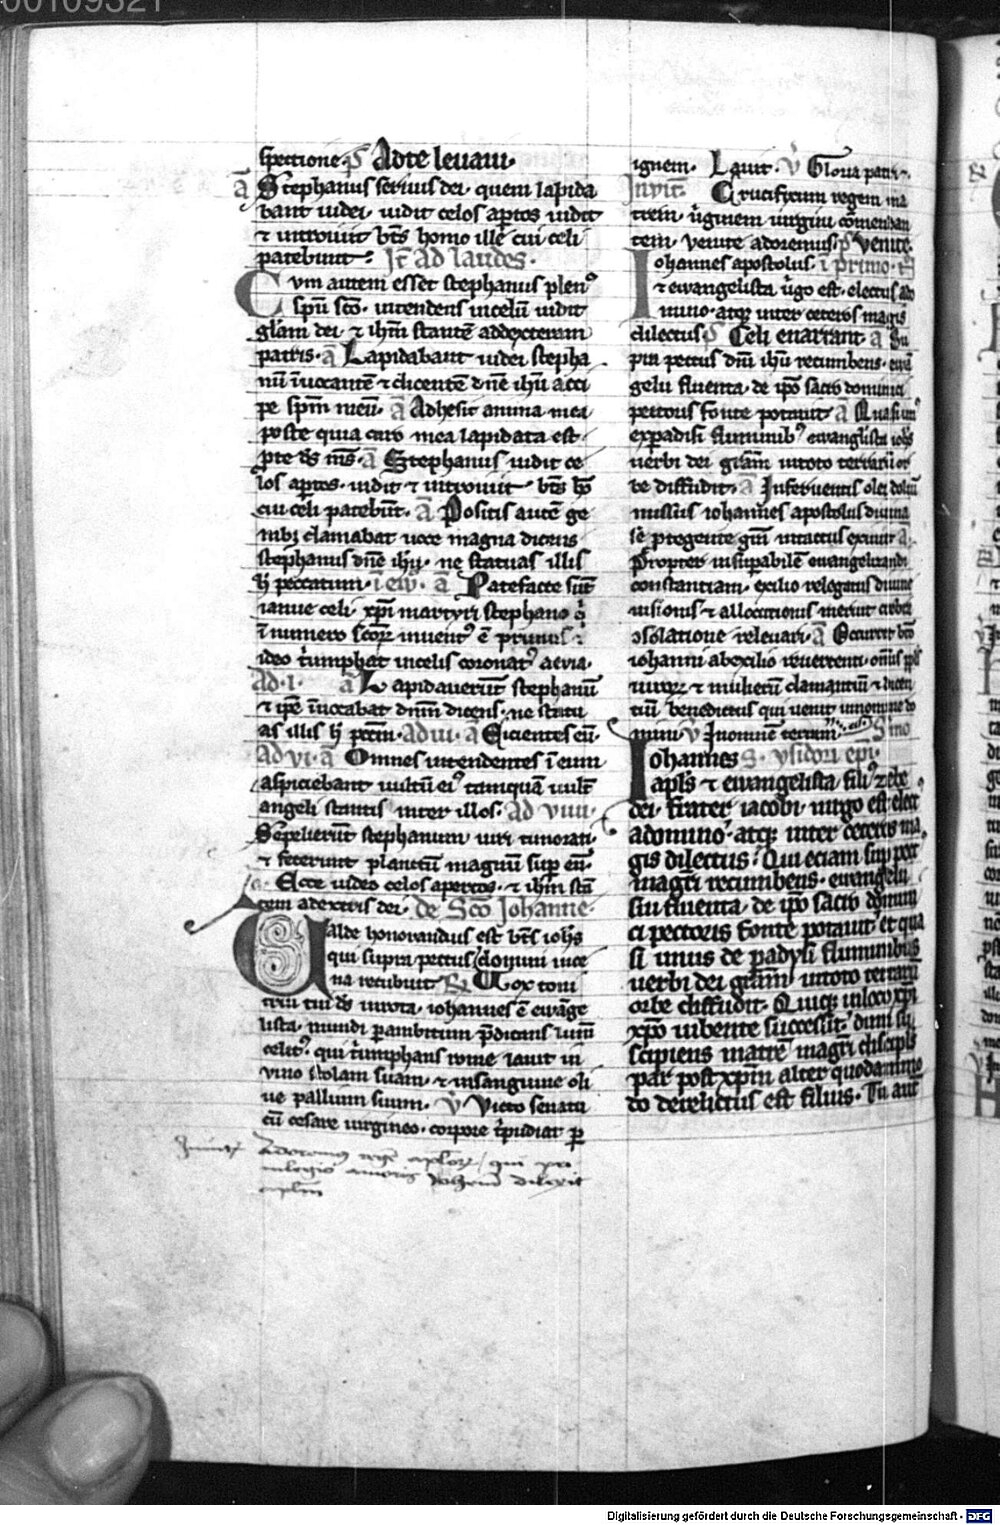 spectione. ps̄ Ad te levavi.
ā Stephanus servus dei. quem lapida
bant iudei. vidit celos ap̄tos vidit
⁊ introiuit. bt̄s homo ille cui celi
patebant. It̄ ad laudes.
Cvm autem esset stephanus plenꝰ
sp̄u sc̄o. intendens in celū vidit
gl̄am dei. ⁊ ih̄m stantē a dexteram
patris. ā Lapidabant iudei stepha
nū īuocantē ⁊ dicentē dn̄e ih̄u acci
pe sp̄m meū. ā Adhesit anima mea
poste quia caro mea lapidata est.
p̄te ds̄ ms̄. ā Stephanus vidit ce
los ap̄tos. vidit ⁊ introiuit. bt̄s hō
cui celi patebāt. ā Positis autē ge
nibꝫ clamabat voce magna dicens
stephanus dn̄e ih̄u. ne statuas illis
h̄ peccatum. ī ew̄. ā Patefacte sūt
ianue celi. xp̄i martyri stephano q̄
ī numero sc̄oꝝ inuentꝰ ē primus.
ideo t̄umphat in celis coronatꝰ aevia.
ad .i. ā Lapidauerūt stephanū
⁊ ip̄e īuocabat dn̄m dicens. ne statu
as illis h̄ pcc̄m. ad iii. ā Eicientes eū.
ad vi. ā Omnes intendentes ī eum
aspiciebant vultū eiꝰ tamquā vult̄
angeli stantis inter illos. ad viiii.
Sepelierūt stephanum viri timorati.
⁊ fecerunt planctū magnū sup eū.
a. Ecce video celos apertos. ⁊ ih̄m stā
tem a dextris dei. de Sc̄o Johanne.
Valde honorandus est bt̄s ioh̄s
qui supra pectus domini in ce
na recubuit. R̄ Vox toni
trui tui ds̄ in rota. iohannes ē ewāge
lista. mundi p ambitum p̄dicans lum̄
celicꝰ. qui t̄umphans rome lauit in
vino stolam suam. ⁊ in sanguine oli
ue pallium suum. v̄ Victo senatu
cū cesare virgineo. corpore t̄pudiat p
Inuit̄ Adoremus regē aplōꝝ qui pri
uilegio amoris Johannē dilexit
aplūm
ignem. Lauit. v̄ Gloria patri.
Invit̄. Crucifixum regem ma
trem. v̄ginem virgini cōmendan
tem. venite adoremus. ps̄ venite.
Iohannes apostolus. ī primo. n̄
⁊ ewangelista v̄go est. electus ad
mino. atqꝫ inter ceteros magis
dilectus. ps̄ Celi enarrant. ā Su
pra pectus dn̄i ih̄u recumbens. ewā
gelii fluenta. de ip̄o sacro dominici
pectoris fonte potauit. ā Quasi unꝰ
ex padisi fluminibꝰ ewangelista ioh̄s
verbi dei grām in toto terrarū or
be diffudit. ā In feruentis olei doliū
missus iohannes apostolus diuina
se protegente grā intactus exiuit. ā
Propter insupabilē ewangelizandi
constantiam. exilio relegatus diuine
visionis ⁊ allocutionis meruit crebra
ↄsolatione releuari. ā Occurrit bt̄o
iohanni ab exilio reuertenti. omnis pp̄ls
viroꝝ ⁊ mulierū clamantiū ⁊ dicen
tiū. benedictus qui venit in nomine do
mini. v̄ In omnē terram.
Iohannes S. ysidori epī.
apl̄s ⁊ ewangelista filiꝰ zebe
dei. frater iacobi. virgo est elect
a domino. atqꝫ inter ceteros ma
gis dilectus. Qui eciam sup pect
magr̄i recumbens. ewangelii
fluenta. de ip̄o sacro domini
ci pectoris fonte potauit. et qua
si unus de padysi fluminibus
verbi dei grām in toto terrarū
orbe diffudit. Quiqꝫ in loco xp̄i
xp̄o iubente successit. dum su
scipiens matrē magr̄i discipl̄s
par post xp̄m alter quodammo
do derelictus est filius. Tu aut
Digitalisierung gefördert durch die Deutsche Forschungsgemeinschaft - DFG